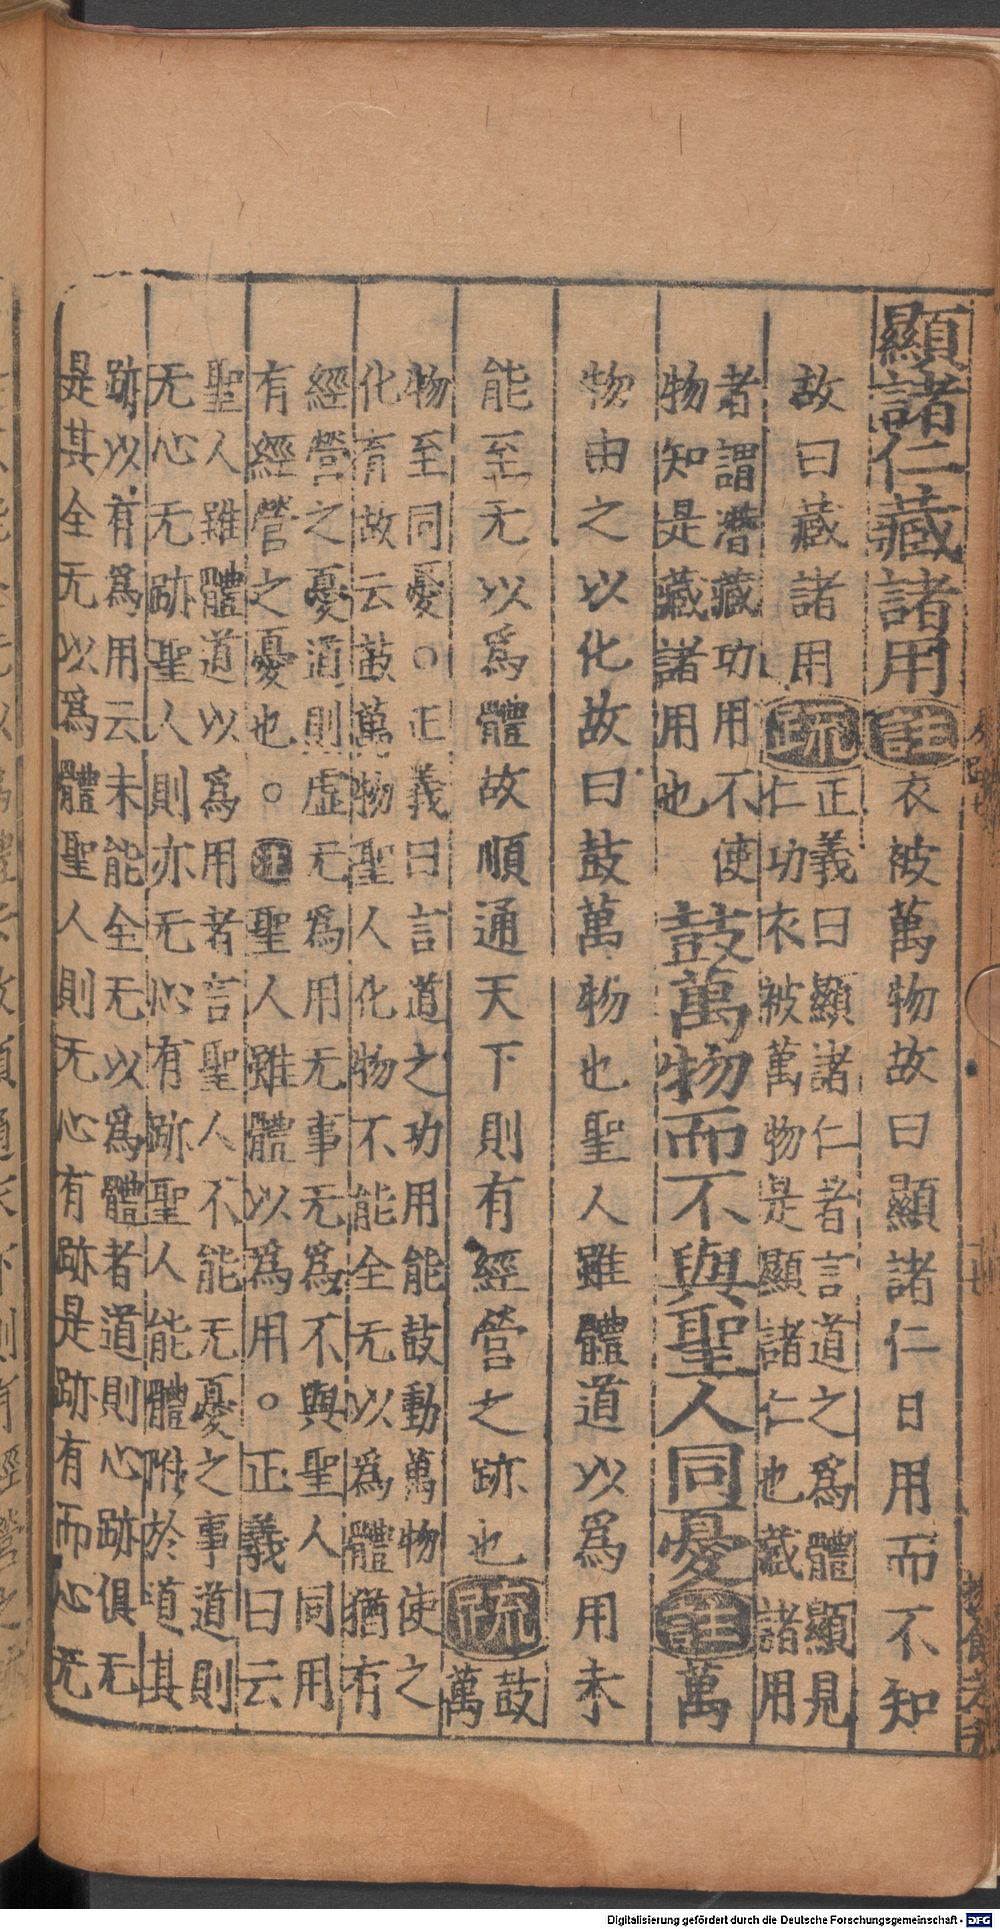 顯諸仁藏諸用註衣被萬物故曰顯諸仁日用而不知
故曰藏諸用疏
正義曰顯諸仁者言道之爲體顯見
仁功衣被萬物是顯諸仁也藏諸用
者謂潛藏功用不使
物知是藏諸用也
鼓萬物而不與聖人同憂註萬
物由之以化故曰鼓萬物也聖人雖體道以爲用未
能至无以爲體故順通天下則有經營之跡也疏
鼓
萬
物至同憂○正義曰言道之功用能鼓動萬物使之
化育故云鼓萬物聖人化物不能全无以爲體猶有
經營之憂道則虛无爲用无事无爲不與聖人同用
有經營之憂也○註聖人雖體以爲用○正義曰云
聖人雖體道以爲用者言聖人不能无憂之事道則
无心无跡聖人則亦无心有跡聖人能體附於道其
跡以有爲用云未能全无以爲體者道則心跡俱无
是其全无以爲體聖人則无心有跡是跡有而心无
Digitalisierung gefördert durch die Deutsche Forschungsgemeinschaft - DFG